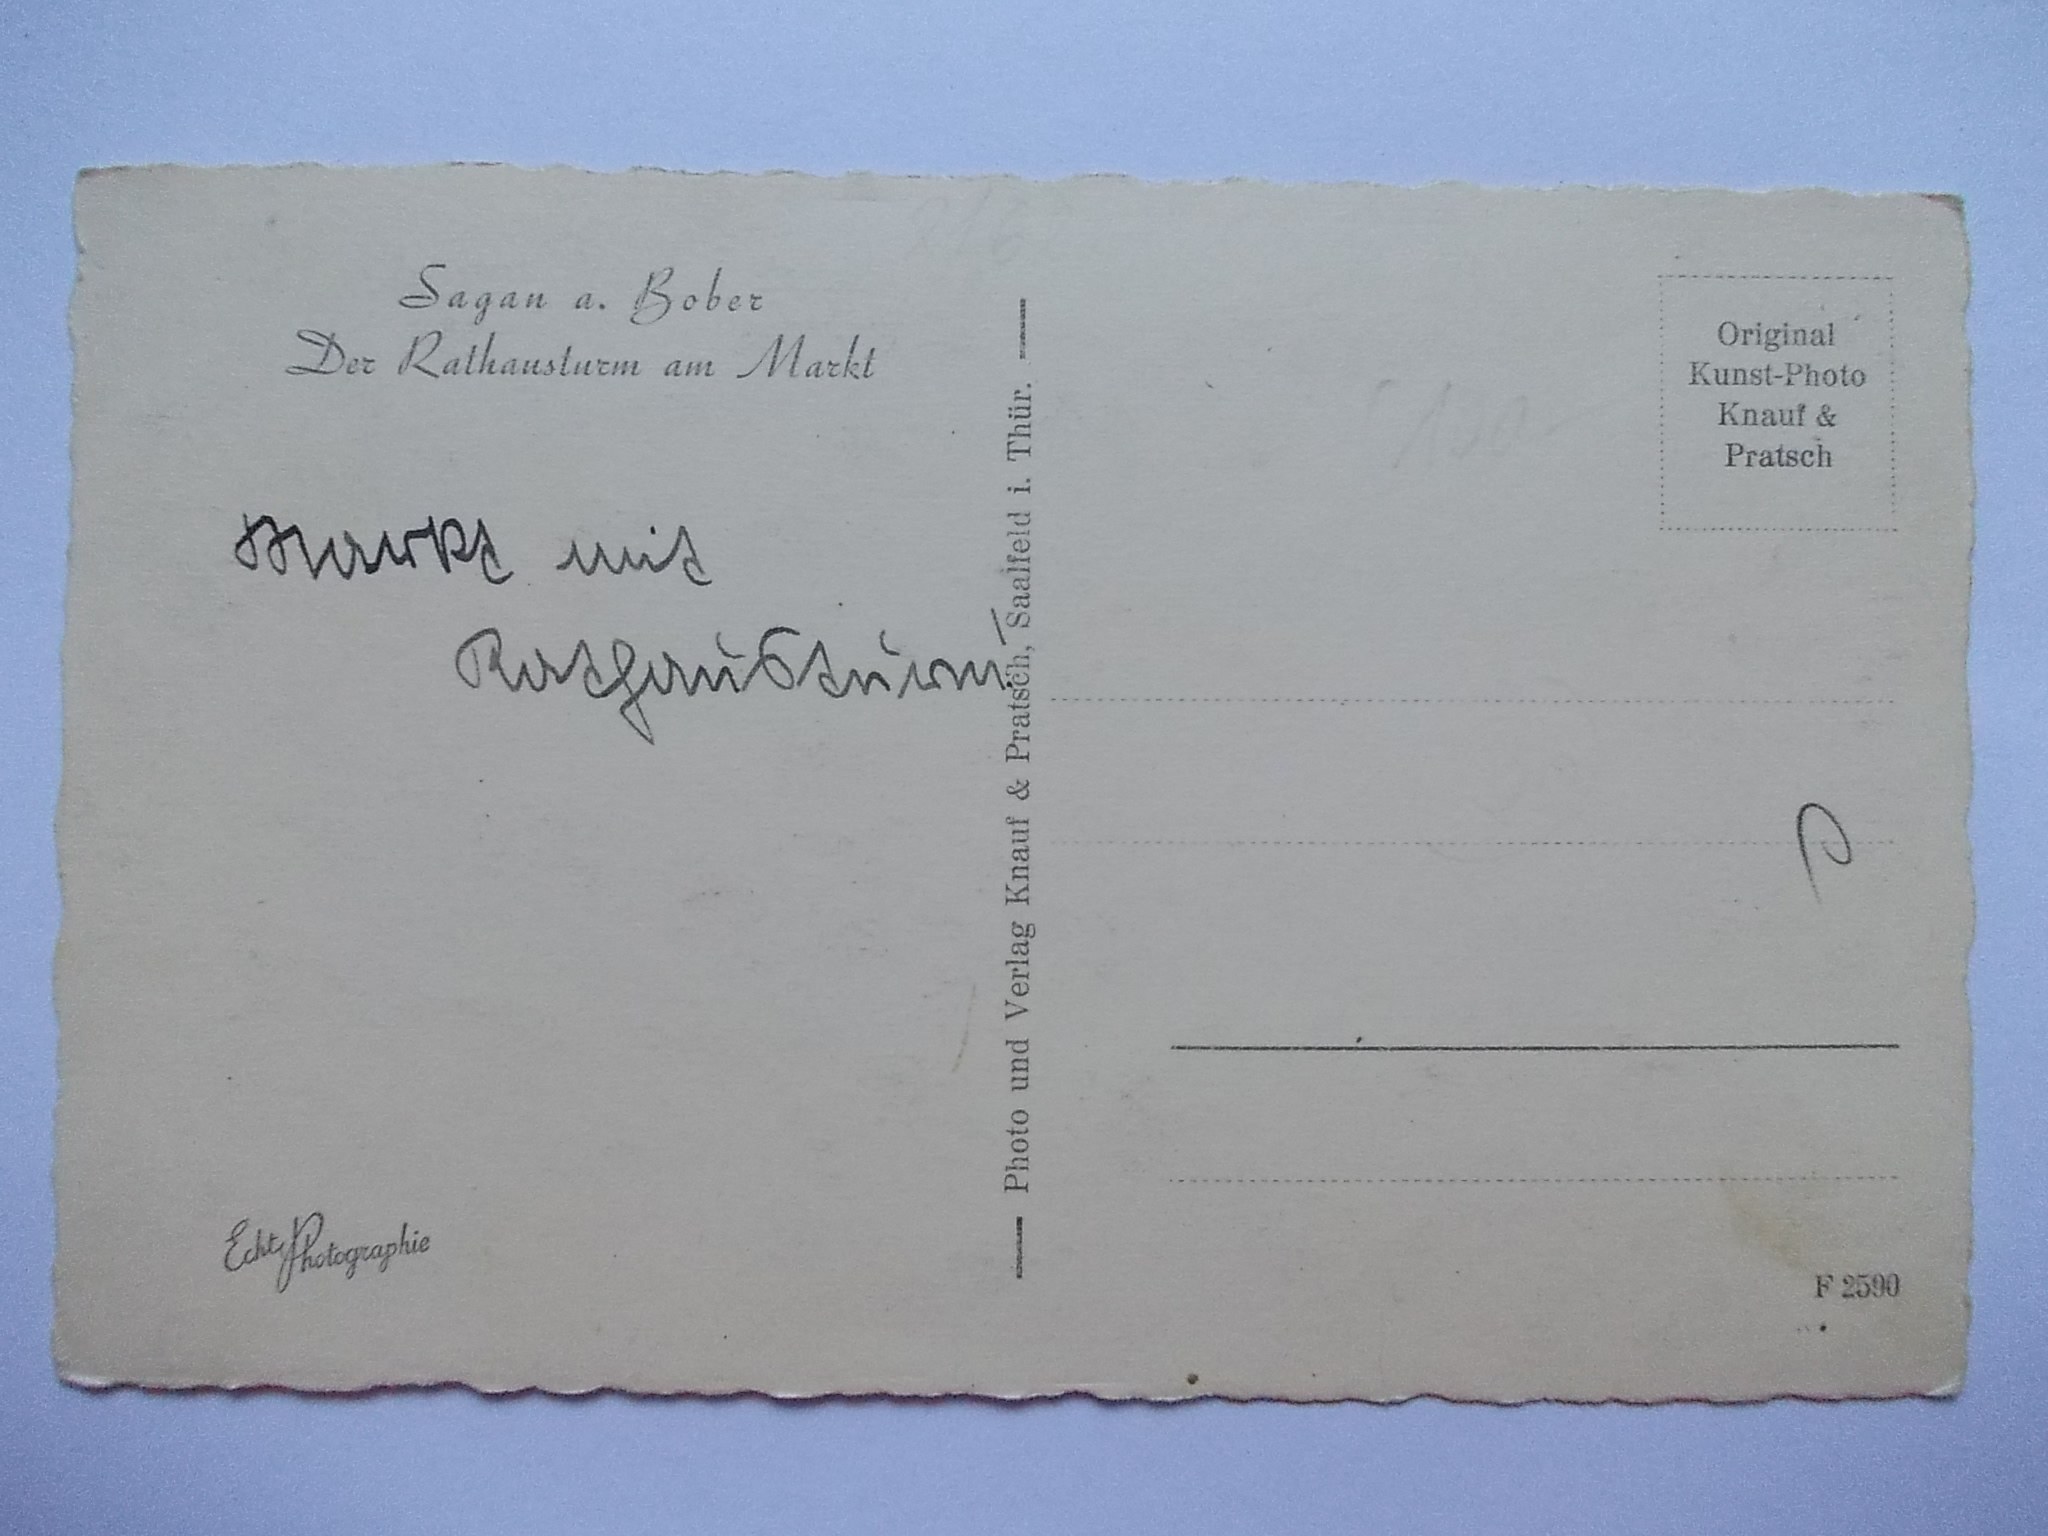 Sagan a. Bober
Der Rathausturm am Markt
Markt mit
Rathausturm!
Echt Photographie
Photo und Verlag Knauf & Pratsch, Saalfeld i. Thür.
Original
Kunst-Photo
Knauf &
Pratsch
P
F 2590